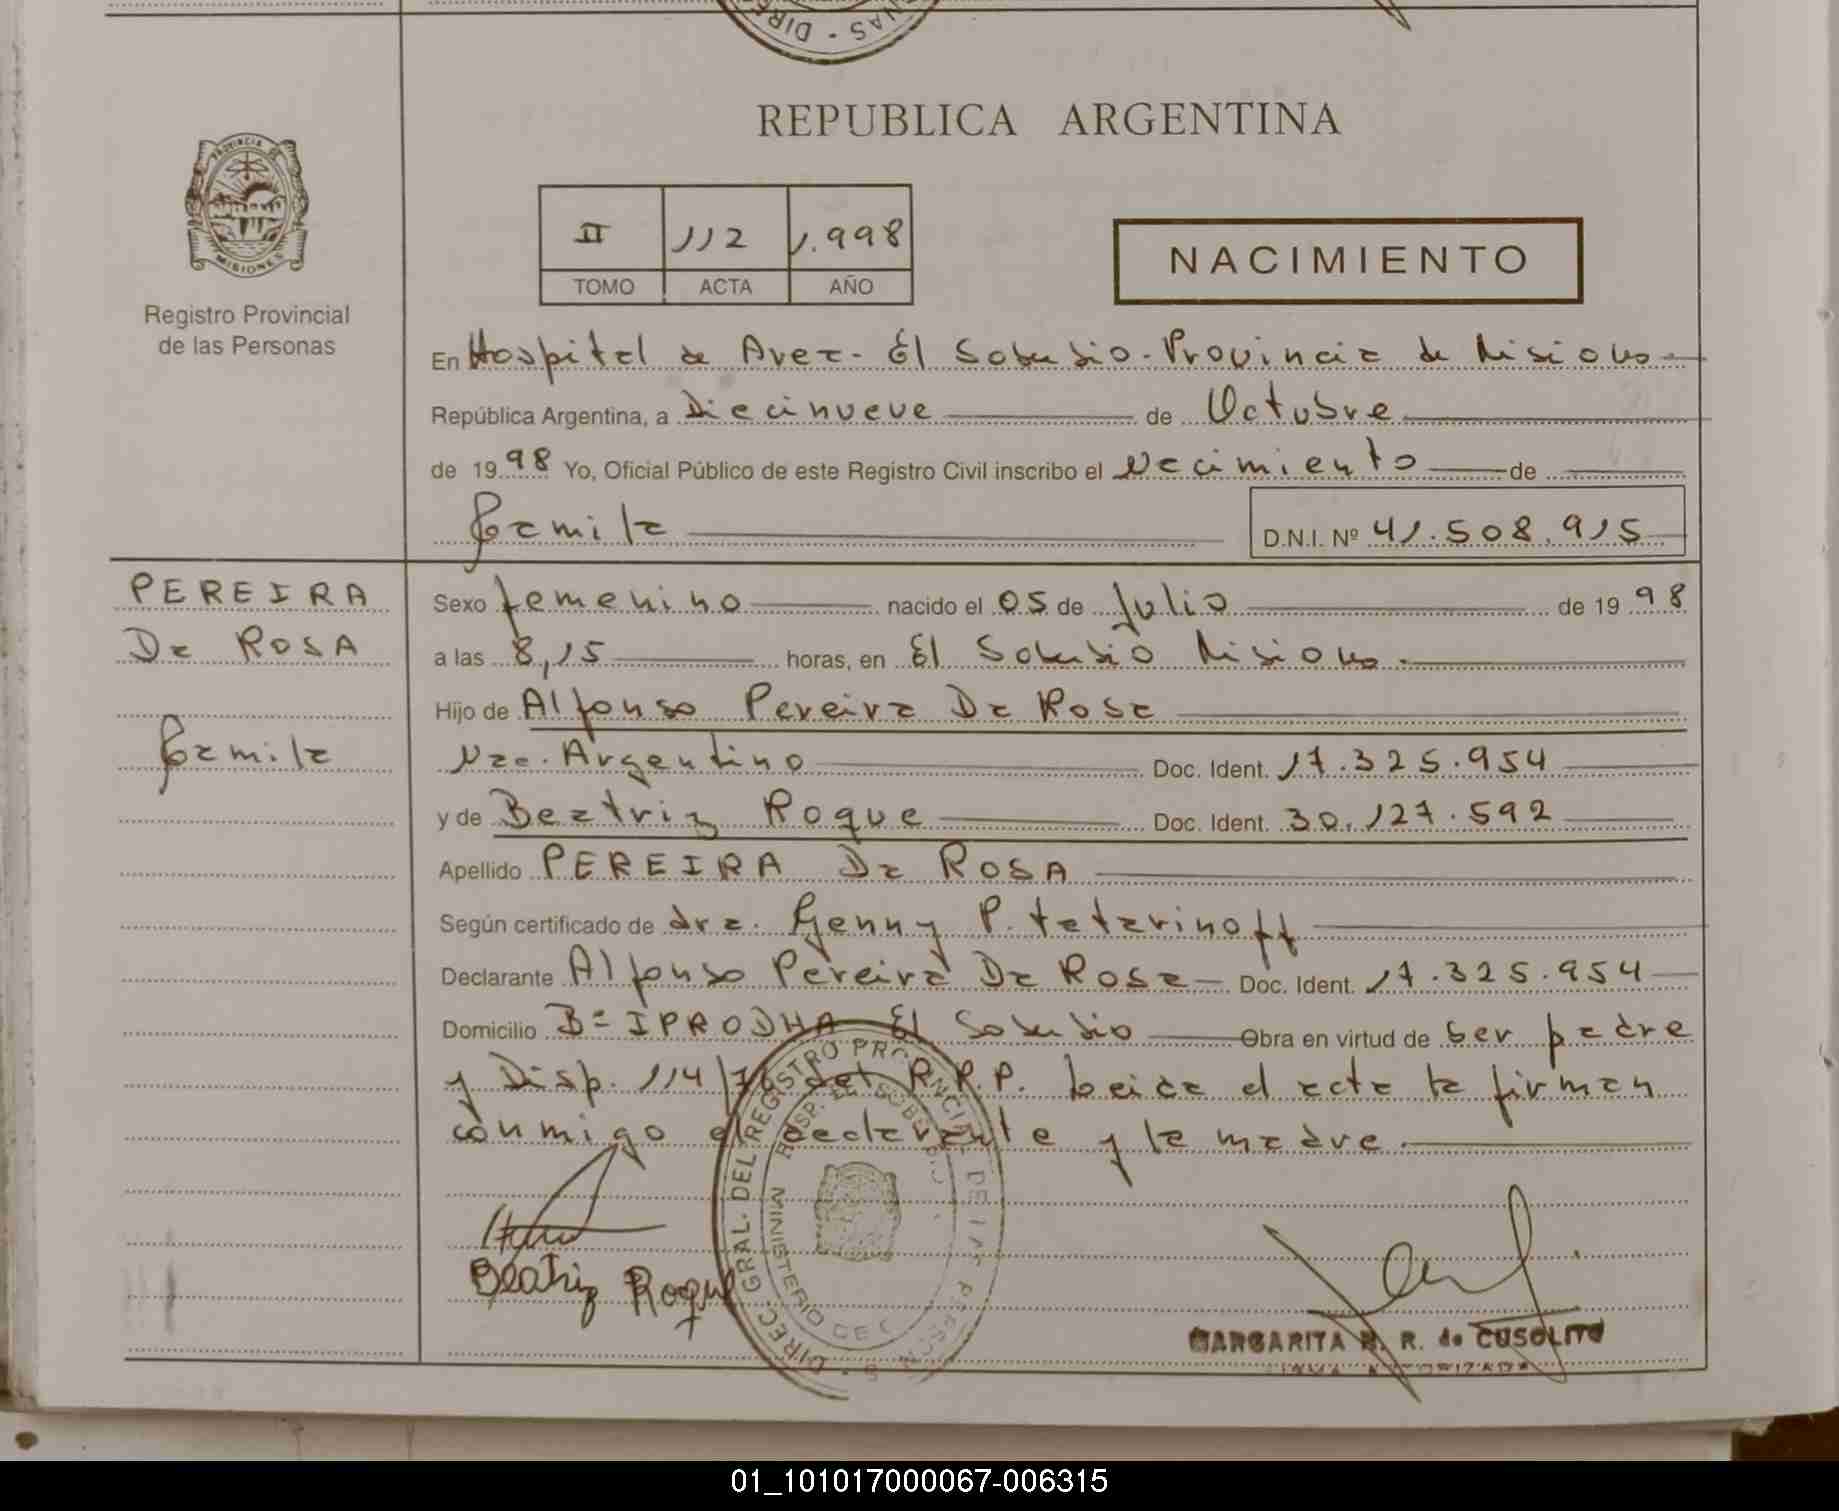 REPUBLICA ARGENTINA
PROVINCIA DE
MISIONES
Registro Provincial
de las Personas
II 112 1.998
TOMO ACTA AÑO
NACIMIENTO
En Hospital de Area - El Soberbio - Provincia de Misiones
República Argentina, a Diecinueve de Octubre
de 1998 Yo, Oficial Público de este Registro Civil inscribo el Nacimiento de
Camila D.N.I. Nº 41.508.915
PEREIRA
Da ROSA
Camila
Sexo femenino nacido el 05 de Julio de 1998
a las 8,15 horas, en El Soberbio Misiones.
Hijo de Alfonso Pereira Da Rosa
Nac. Argentino Doc. Ident. 17.325.954
y de Beatriz Roque Doc. Ident. 30.127.592
Apellido PEREIRA Da ROSA
Según certificado de dra. Genny P. tatarinoff
Declarante Alfonso Pereira Da Rosa Doc. Ident. 17.325.954
Domicilio Bº IPRODHA El Soberbio Obra en virtud de ser padre
y Disp. 114/76 del R.P.P. Leida el acta la firman
conmigo el declarante y la madre.
Beatriz Roque
DIREC. GRAL. DEL REGISTRO PROVINCIAL DE LAS PERSONAS
HOSP. EL SOBERBIO
MINISTERIO DE
MARGARITA R. R. de CUSOLITO
FIRMA AUTORIZADA
01_101017000067-006315